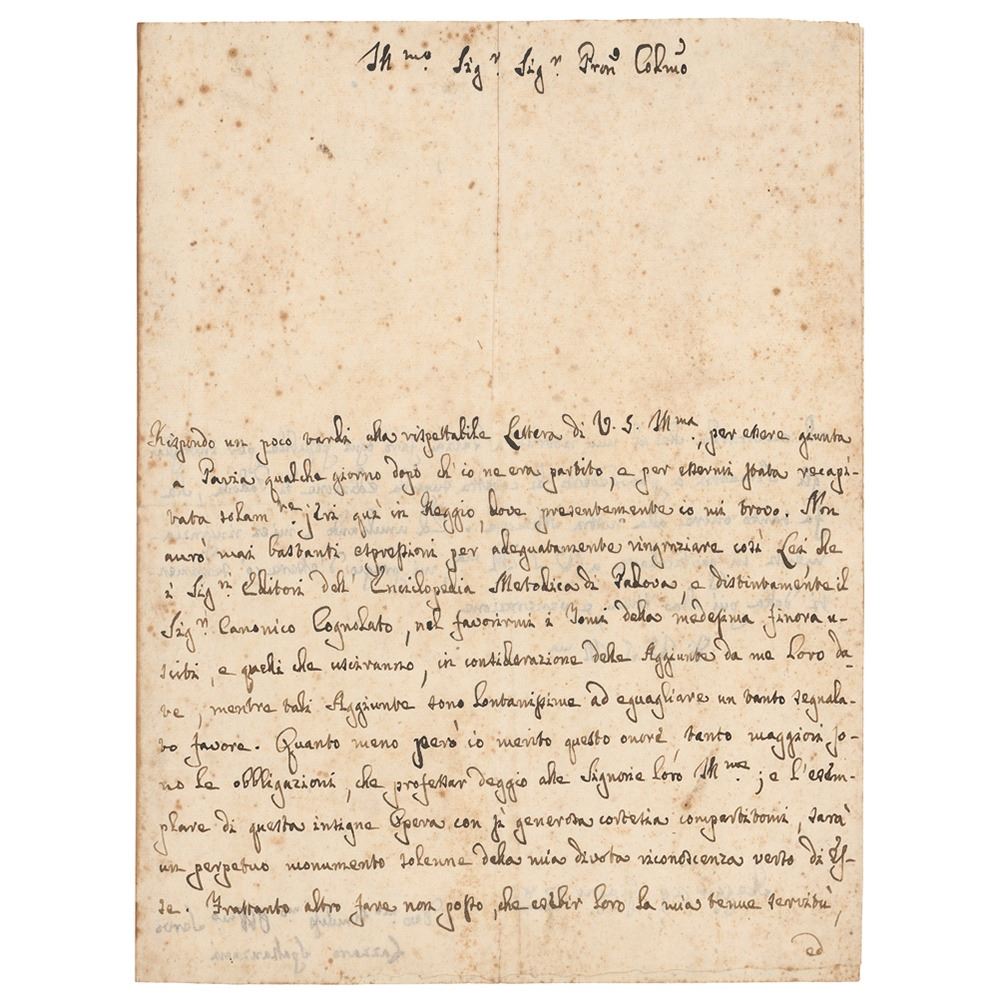 Ill.mo Sig.r Sig.r Pron Colmo
Rispondo un poco tardi alla rispettabile Lettera di V. S. Ill.ma, per essere giunta
a Pavia qualche giorno dopo ch'io ne era partito, e per essermi stata recapi-
tata solam.te jeri qui in Reggio, dove presentemente io mi trovo. Non
aurò mai bastanti espressioni per adeguatamente ringraziare così Lei che
i Sig.ri Editori dell'Enciclopedia Metodica di Padova, e distintamente il
Sig.r Canonico Cognolato, nel favorirmi i Tomi della medesima finora u-
sciti, e quelli che usciranno, in considerazione delle Aggiunte da me loro da-
te, mentre tali Aggiunte sono lontanissime ad eguagliare un tanto segnala-
to favore. Quanto meno però io merito questo onore, tanto maggiori so-
no le obbligazioni, che professar deggio alle Signorie loro Ill.me; e l'esem-
plare di questa insigne Opera con sì generosa cortesia compartitomi, sarà
un perpetuo monumento solenne della mia divota riconoscenza verso di Es-
se. Frattanto altro fare non posso, che esibir Loro la mia tenue servitù,
ed
Lazzaro Spallanzani